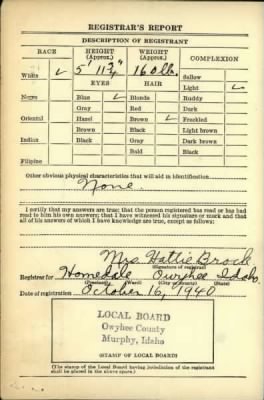 REGISTRAR'S REPORT
DESCRIPTION OF REGISTRANT
RACE HEIGHT (Approx.) WEIGHT (Approx.) COMPLEXION
White ✓ 5' 11¾" 160 lb. Sallow
EYES HAIR Light ✓
Negro Blue ✓ Blonde Ruddy
Gray Red Dark
Oriental Hazel Brown ✓ Freckled
Brown Black Light brown
Indian Black Gray Dark brown
Bald Black
Filipino
Other obvious physical characteristics that will aid in identification
None.
I certify that my answers are true; that the person registered has read or has had
read to him his own answers; that I have witnessed his signature or mark and that
all of his answers of which I have knowledge are true, except as follows:
Mrs. Hattie Brock
(Signature of registrar)
Registrar for Homedale Owyhee Idaho
(Precinct) (Ward) (City or County) (State)
Date of registration October 16, 1940
LOCAL BOARD
Owyhee County
Murphy, Idaho
(STAMP OF LOCAL BOARD)
(The stamp of the Local Board having jurisdiction of the registrant
shall be placed in the above space.)